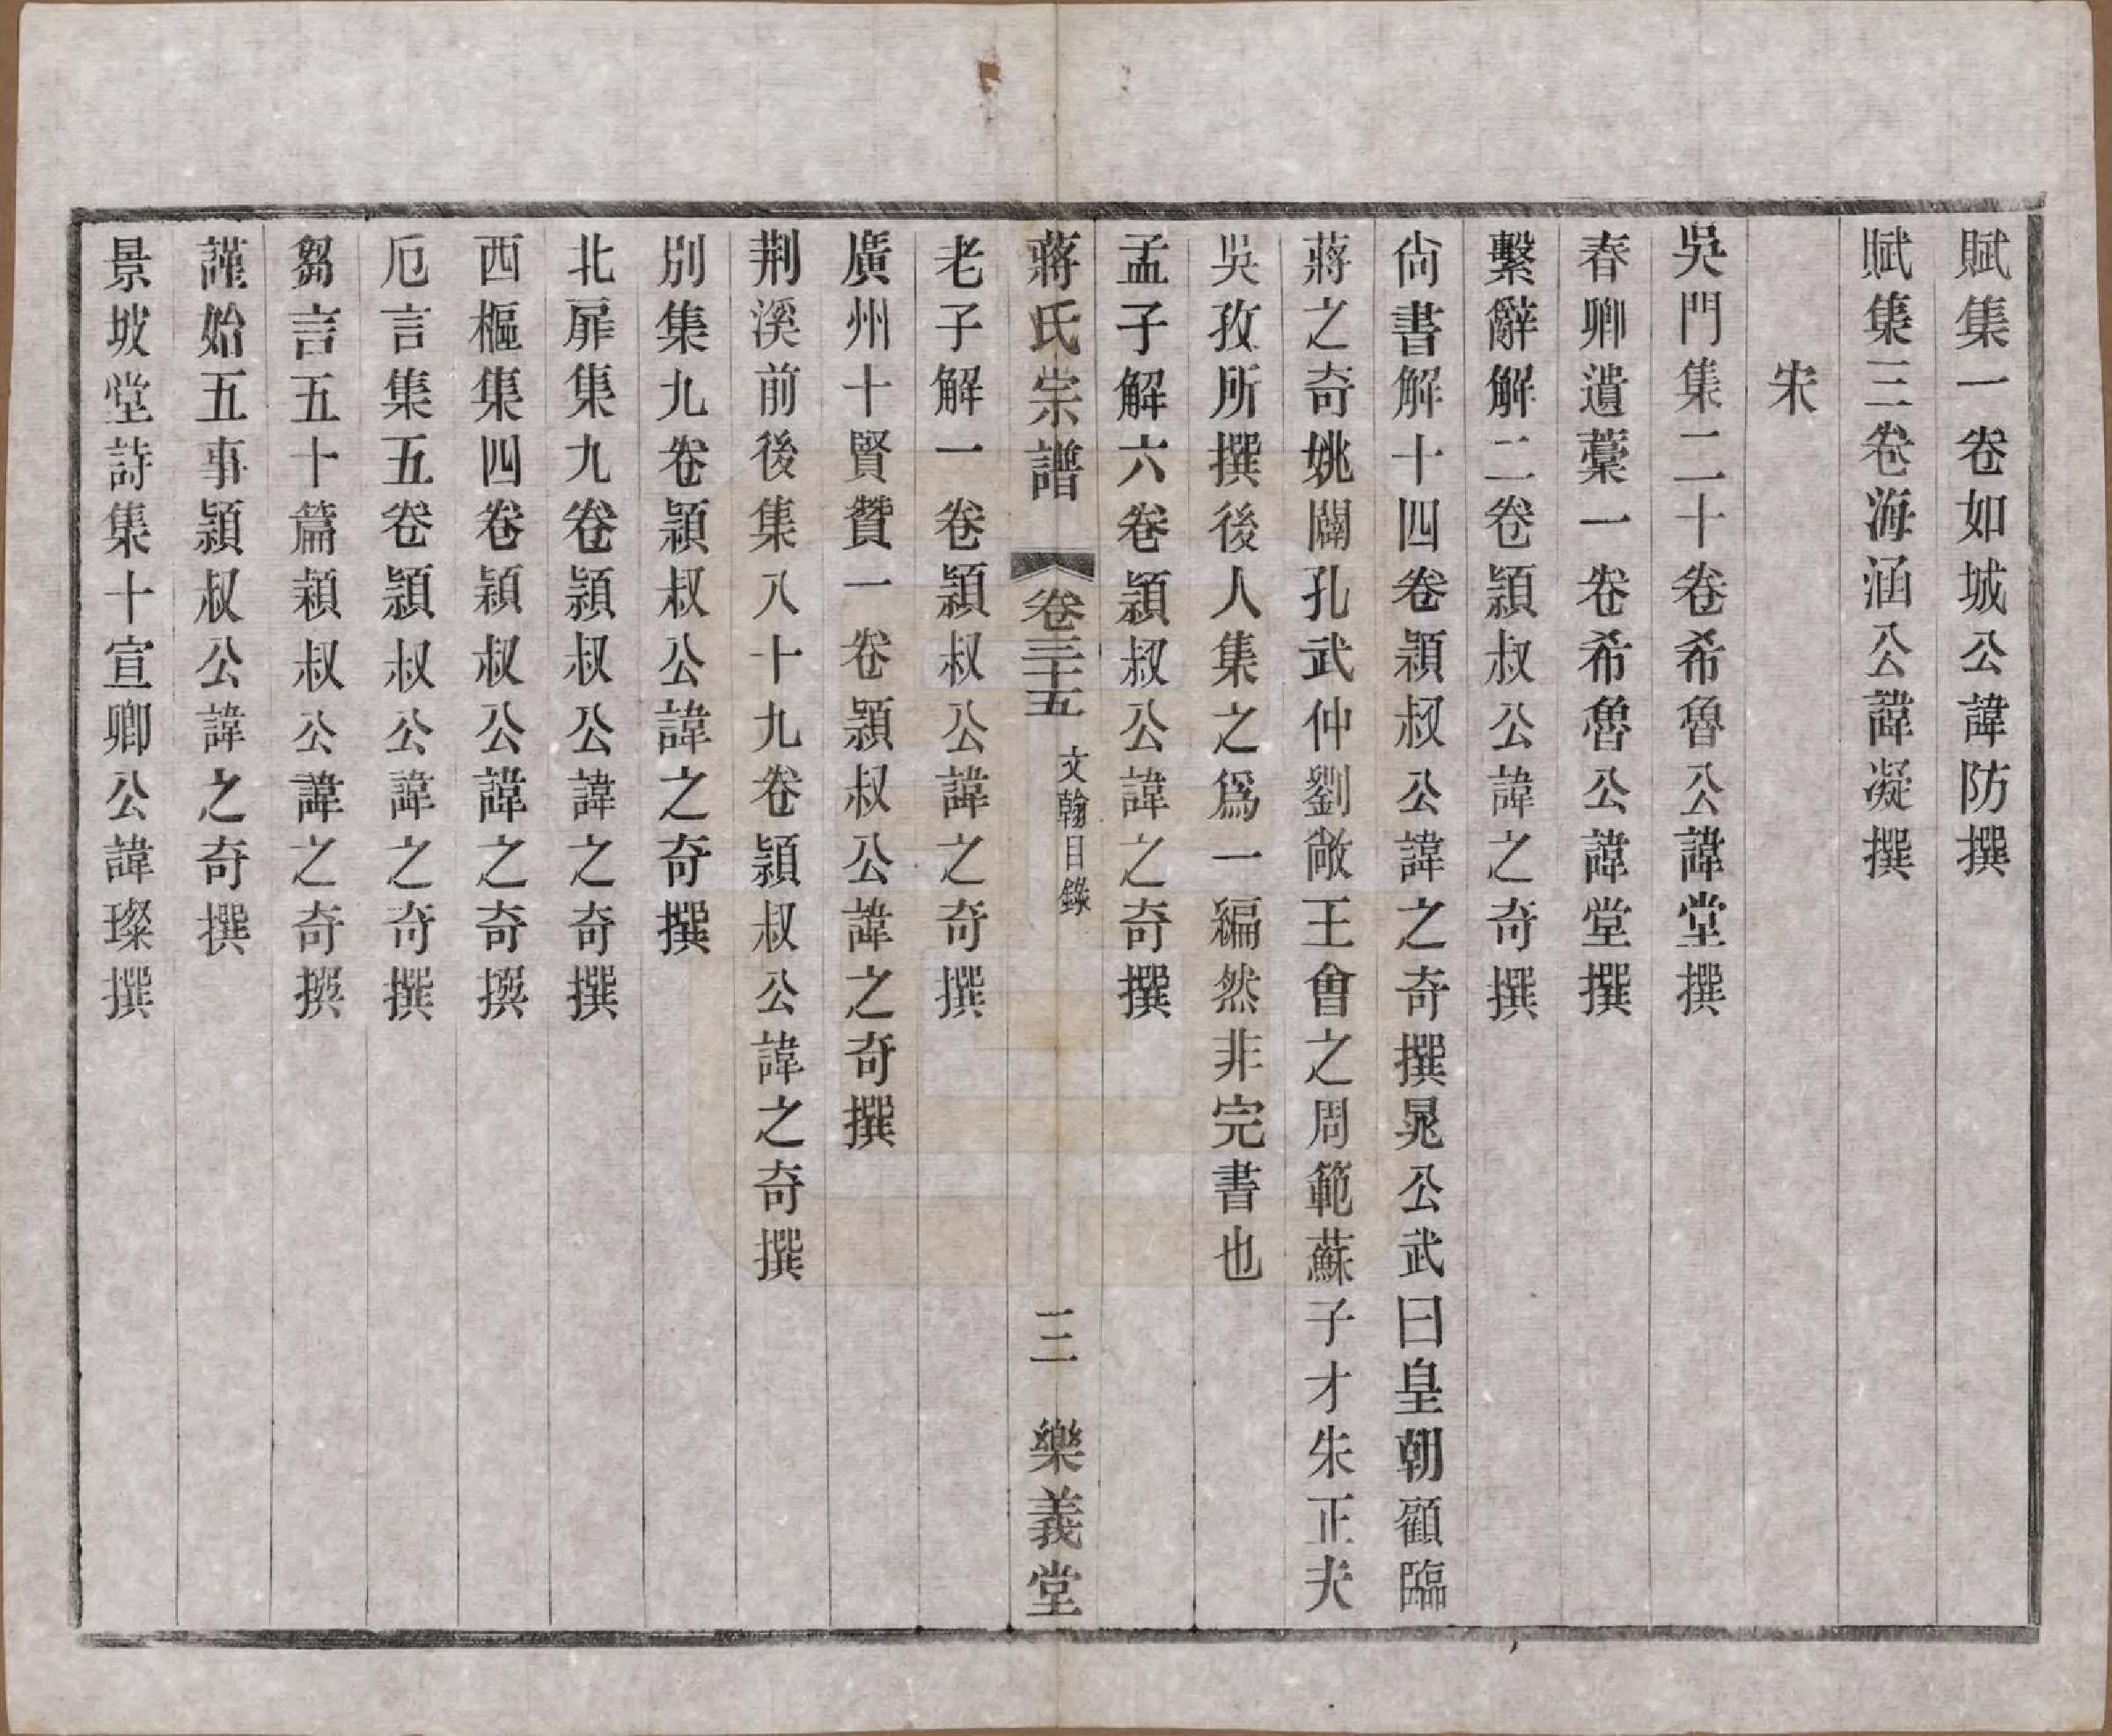 賦集一卷如城公諱防撰
賦集三卷海涵公諱凝撰
宋
吳門集二十卷希魯公諱堂撰
春卿遺藁一卷希魯公諱堂撰
繫辭解二卷頴叔公諱之奇撰
尙書解十四卷頴叔公諱之奇撰晁公武曰皇朝顧臨
蔣之奇姚闢孔武仲劉敞王會之周範蘇子才朱正夫
吳孜所撰後人集之爲一編然非完書也
孟子解六卷頴叔公諱之奇撰
蔣氏宗譜 卷三十五 文翰目錄 三 樂義堂
老子解一卷頴叔公諱之奇撰
廣州十賢贊一卷頴叔公諱之奇撰
荆溪前後集八十九卷頴叔公諱之奇撰
別集九卷頴叔公諱之奇撰
北扉集九卷頴叔公諱之奇撰
西樞集四卷頴叔公諱之奇撰
卮言集五卷頴叔公諱之奇撰
芻言五十篇頴叔公諱之奇撰
謹始五事頴叔公諱之奇撰
景坡堂詩集十宣卿公諱璨撰